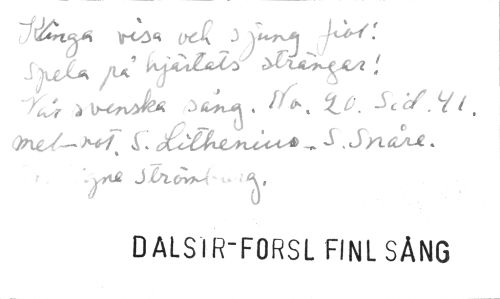 Klinga visa och sjung fiol!
Spela på hjärtats strängar!
Vår svenska sång. No. 20. Sid. 41.
mel-not. S. Lithenius - S. Snåre.
Signe Strömberg.
DALSIR-FORSL FINL SÅNG